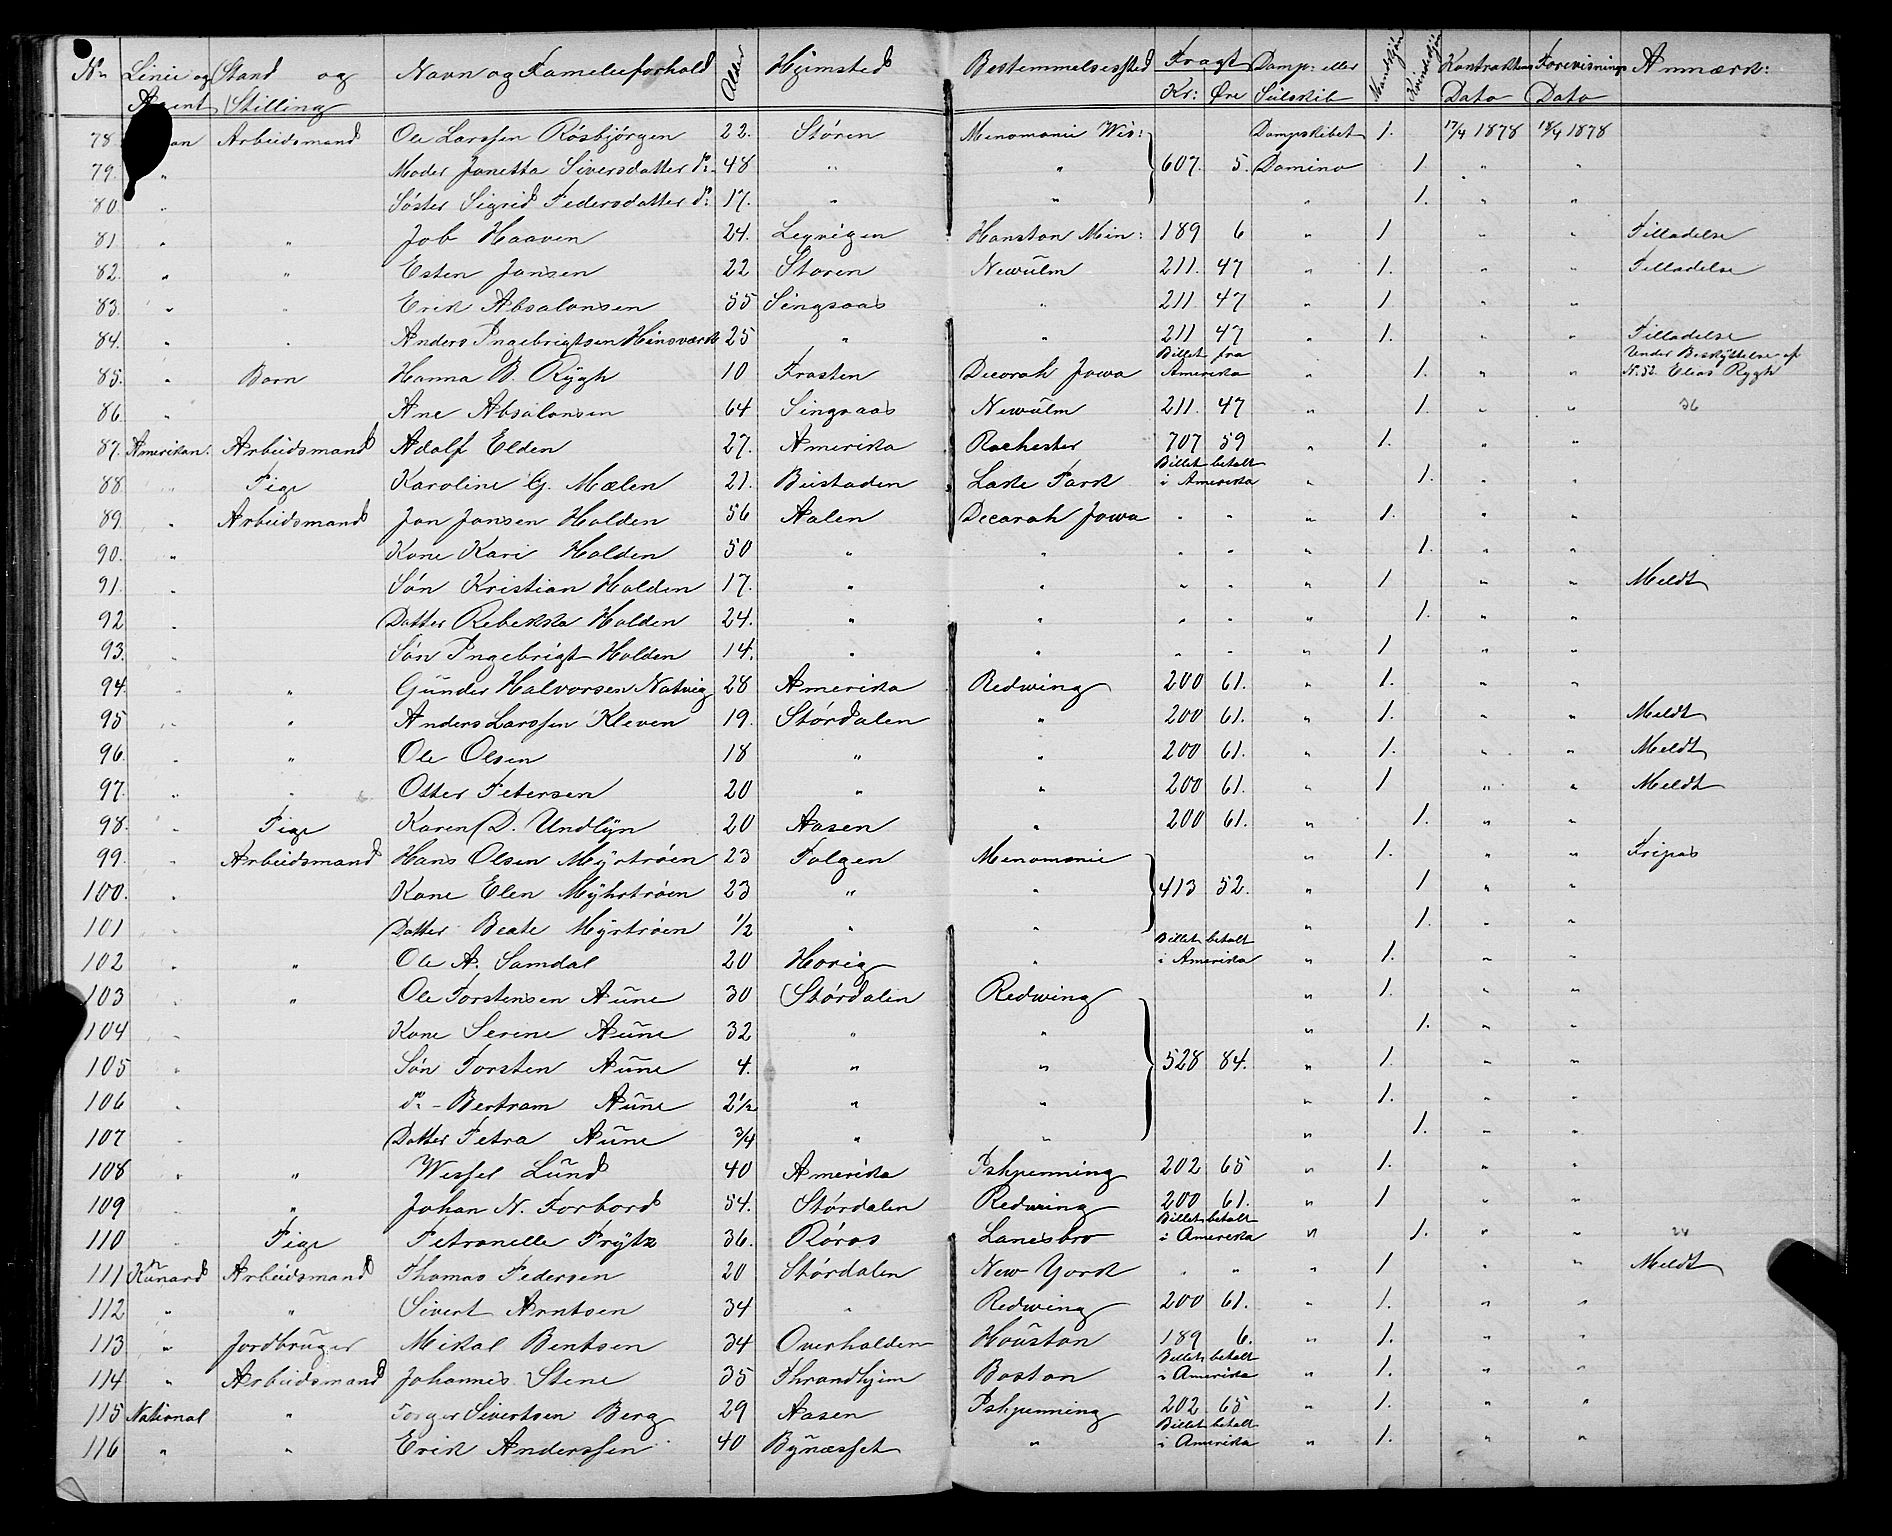 No Linie og Stand og Navn og Familieforhold Alder Hjemsted Bestemmelsessted Fragt Damp: eller Mandkjøn Kvindekjøn Kontraktens Forevisnings Anmærk:
Agent Stilling Kr: Øre Seilskib Dato Dato
78. Arbeidsmand Ole Larssen Rösbjörgen 22. Stören Menomonie Wis: Dampskibet 1. 17/4 1878 18/4 1878
79. " Moder Janetta Siversdatter do 48 " " 607. 5. Domino 1. " "
80 " Søster Sigrid Pedersdatter do 17. " " " 1. " "
81 " " Job Haaven 24. Lexvigen Hanston Min: 189 6 " 1 " " Tilladelse
82. " " Esten Jansen 22 Storen Newülm 211. 47 " 1. " " Tilladelse
83. " " Erik Absalonsen 55 Singsaas " 211 47 " 1 " "
84. " " Anders Ingebrigtsen Hinsværk 25 " " 211 47 " 1. " " Tilladelse
85. " Barn Hanna B. Rÿgh 10 Frosten Decorah Jowa Billet fra Amerika 1. " " Under Beskÿttelse af No. 52. Elias Rygh
86. " Ane Absalonsen 64 Singsaas Newülm 211. 47 " 1. " " 36
87. Amerikan. Arbeidsmand Adolf Elden 27. Amerika Rochester 707 59 " 1. " "
88. " Pige Karoline G. Mælen 21. Beistaden Lake Park Billet betalt i Amerika " 1. " "
89. " Arbeidsmand Jon Jansen Holden 56 Aalen Decorah Jowa " " " 1. " "
90. " Kone Kari Holden 50 " " " " " 1. " "
91. " Søn Kristian Holden 17. " " " " " 1 " " Meldt
92 " Datter Rebekka Holden 24. " " " " " 1. " "
93. " Søn Ingebrigt Holden 14. " " " " " 1 " "
94. " " Günder Halvorsen Natvig 28 Amerika Redwing 200 61. " 1. " "
95 " " Anders Larssen Kleven 19. Stördalen " 200 61. " 1. " " Meldt
96. " " Ole Olsen 18 " " 200 61. " 1. " " Meldt
97. " " Otter Petersen 20 " " 200 61. " 1 " " Meldt
98. " Pige Karen D. Undlÿn 20 Aasen " 200 61. " 1. " "
99. " Arbeidsmand Hans Olsen Mÿrtröen 23 Tolgen Menomonie " 1. " " Fripas
100. " Kone Elen Mÿhrtröen 23 " " 413 52. " 1 " "
101 " Datter Beate Mÿrtröen 1/2 " " " 1. " "
102 " " Ole A. Samdal 20 Horig " Billet betalt i Amerika " 1. " "
103 " " Ole Torstensen Aüne 30 Stördalen Redwing " 1. " "
104 " Kone Serine Aüne 32 " " " 1. " "
105 " Søn Torsten Aüne 4. " " 528 84. " 1. " "
106 " do - Bertram Aüne 2 1/2 " " " 1. " "
107 " Datter Petra Aüne 3/4 " " " 1. " "
108 " " Wessel Lünd 40 Amerika Ishpenning 202 65 " 1. " "
109 " " Johan N. Forbord 54. Stördalen Redwing 200 61. " 1 " "
110 " Pige Petronelle Frÿtz 36. Röros Lanesbro Billet betalt i Amerika " 1. " " 24
111 Künard Arbeidsmand Thomas Pedersen 20 Stördalen New York " " " 1 " " Meldt
112 " " Sivert Arntsen 34 " Redwing 200 61. " 1. " "
113 " Jordbrüger Mikal Bentsen 34 Overhalden Hoüston 189 6. " 1. " "
114 " Arbeidsmand Johannes Stene 35 Thrandhjem Boston Billet betalt i Amerika " 1. " "
115 National " Torger Sivertsen Berg 29 Aasen Ishpenning 202 65 " 1. " "
116 " " Erik Anderssen 40 Bÿnæsset " Billet betalt i Amerika " 1. " "